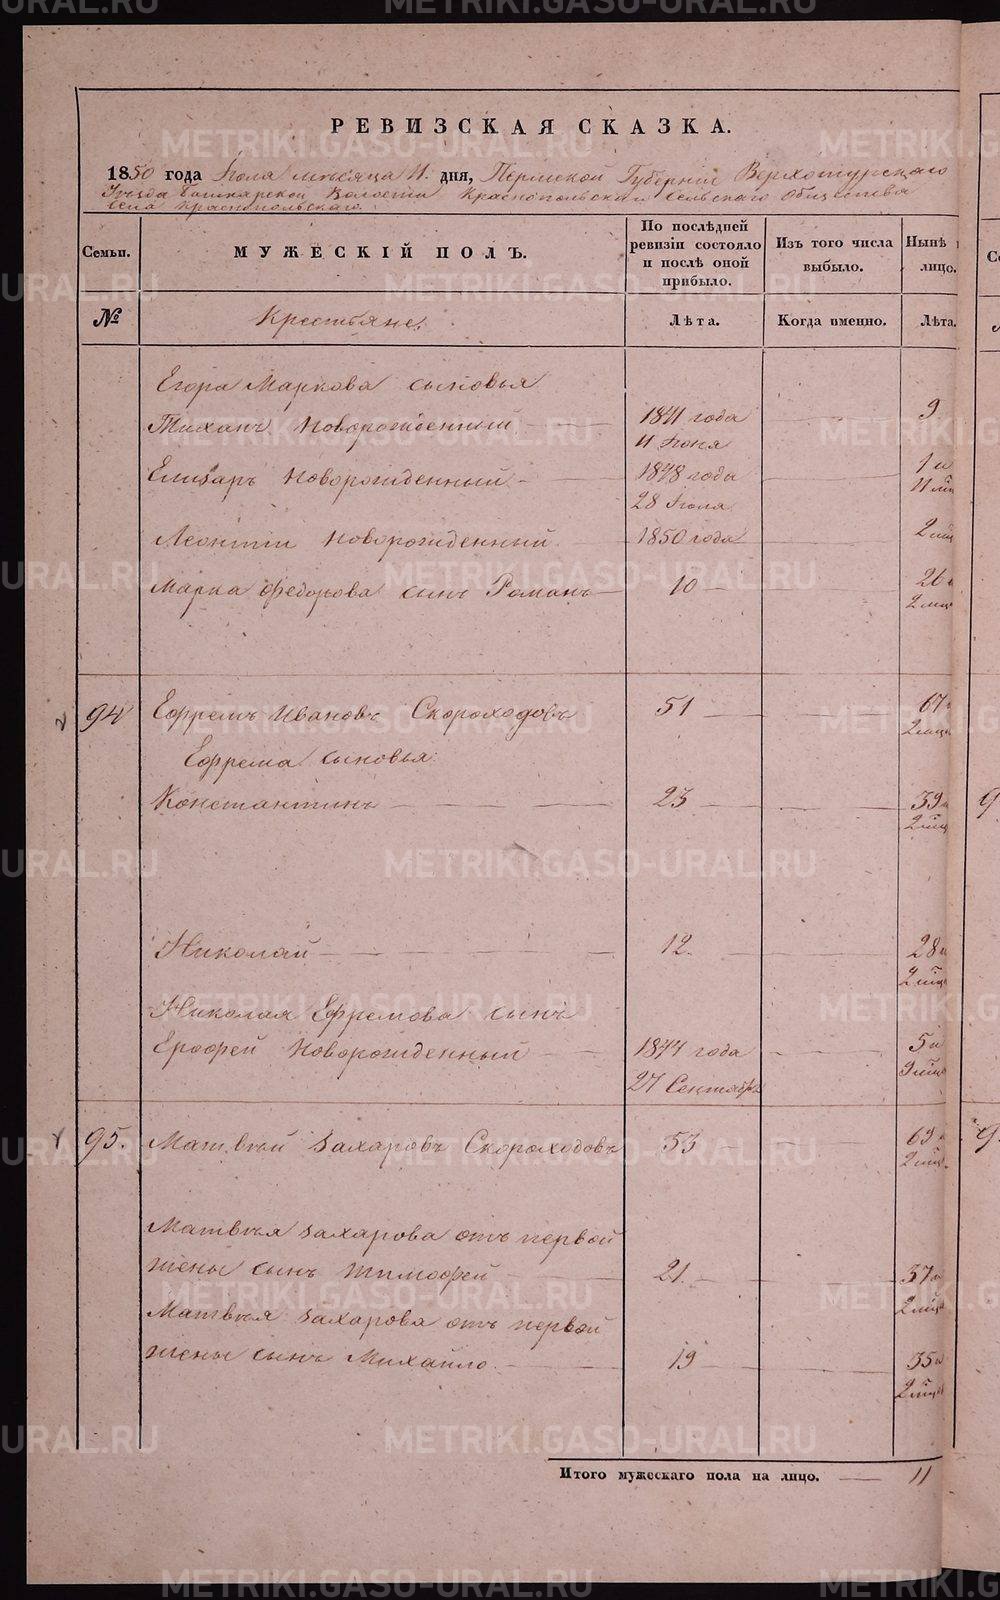 РЕВИЗСКАЯ СКАЗКА.
1850 года Іюля мѣсяца 11. дня, Пермской Губерніи Верхотурскаго
Уѣзда Башкарской Волости Краснопольскаго сельскаго Общества
села Краснопольскаго.
Семьи.
МУЖЕСКІЙ ПОЛЪ.
По послѣдней ревизіи состояло и послѣ оной прибыло.
Изъ того числа выбыло.
Нынѣ
лицо.
№
Крестьяне.
Лѣта.
Когда именно.
Лѣта.
Егора Маркова сыновья
Тиханъ Новорожденный 1841 года 9
11 Іюня
Елизаръ Новорожденный 1848 года 1 и
28 Іюля 11 мѣ
Леонтіи новорожденный 1850 года 2 мѣц
Марка Федорова сынъ Романъ 10 26
2 мѣц
94 Ефремъ Ивановъ Скороходовъ 51 67
2 мѣц
Ефрема сыновья:
Константинъ 23 39
2 мѣц
Николай 12. 28
2 мѣц
Николая Ефремова сынъ
Ерофей Новорожденный 1844 года 5 и
27 Сентябр 9 мѣц
95. Матвѣй Захаровъ Скороходовъ 53 69
2 мѣц
Матвѣя Захарова отъ первой
жены сынъ Тимофей 21. 37
2 мѣц
Матвѣя Захарова отъ первой
жены сынъ Михайло. 19 35
2 мѣц
Итого мужескаго пола на лицо. 11
METRIKI.GASO-URAL.RU